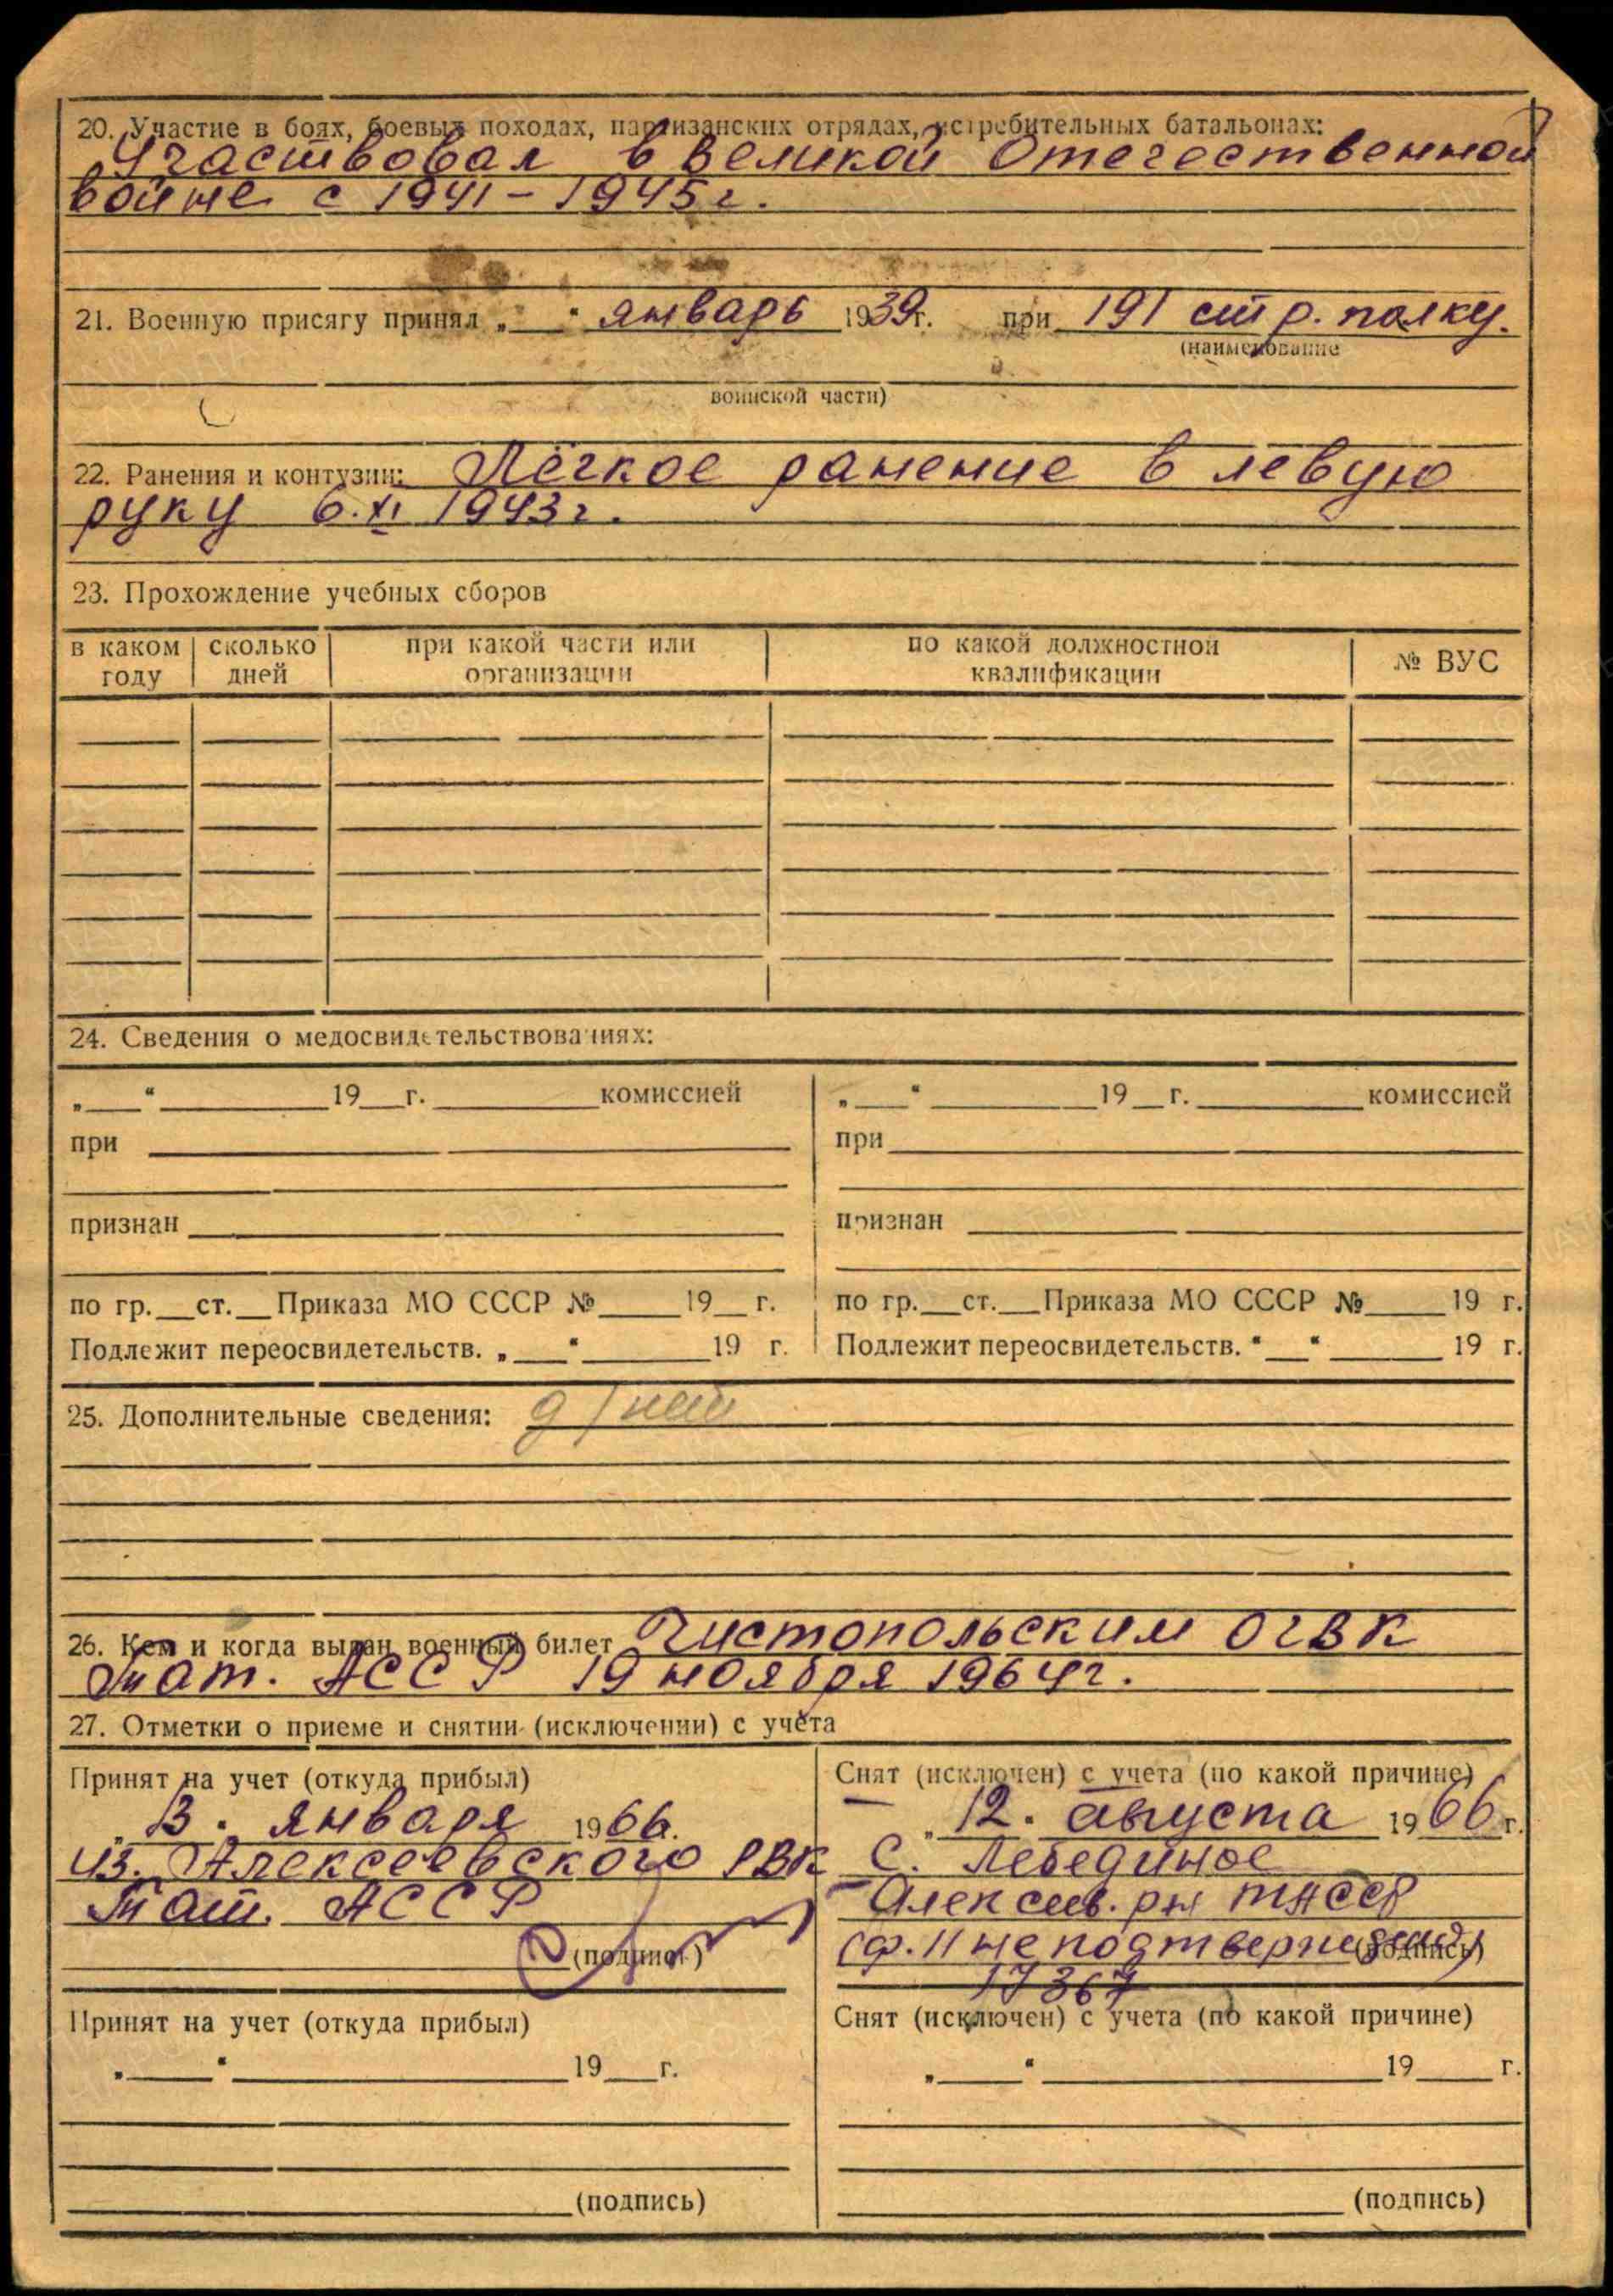 20. Участие в боях, боевых походах, партизанских отрядах, истребительных батальонах:
Участвовал в Великой Отечественной
войне с 1941-1945г.
21. Военную присягу принял „ “ январь 1939г. при 191 стр. полку.
(наименование
воинской части)
22. Ранения и контузии: Лёгкое ранение в левую
руку 6.XI 1943г.
23. Прохождение учебных сборов
в каком году сколько дней при какой части или организации по какой должностной квалификации № ВУС
24. Сведения о медосвидетельствованиях:
„ “ 19 г. комиссией
при
признан
по гр. ст. Приказа МО СССР № 19 г.
Подлежит переосвидетельств. „ “ 19 г.
„ “ 19 г. комиссией
при
признан
по гр. ст. Приказа МО СССР № 19 г.
Подлежит переосвидетельств. “ “ 19 г.
25. Дополнительные сведения:
26. Кем и когда выдан военный билет Чистопольским ОГВК
Тат. АССР 19 ноября 1964г.
27. Отметки о приеме и снятии (исключении) с учёта
Принят на учет (откуда прибыл)
13. января 1966.
из. Алексеевского РВК
Тат. АССР
(подпись)
Снят (исключен) с учета (по какой причине)
„ 12. августа 1966г.
С. Лебединое
Алексеев. рн ТАССР
(ф. 11 не подтвержден)
(подпись)
17367
Принят на учет (откуда прибыл)
„ “ 19 г.
(подпись)
Снят (исключен) с учета (по какой причине)
„ “ 19 г.
(подпись)